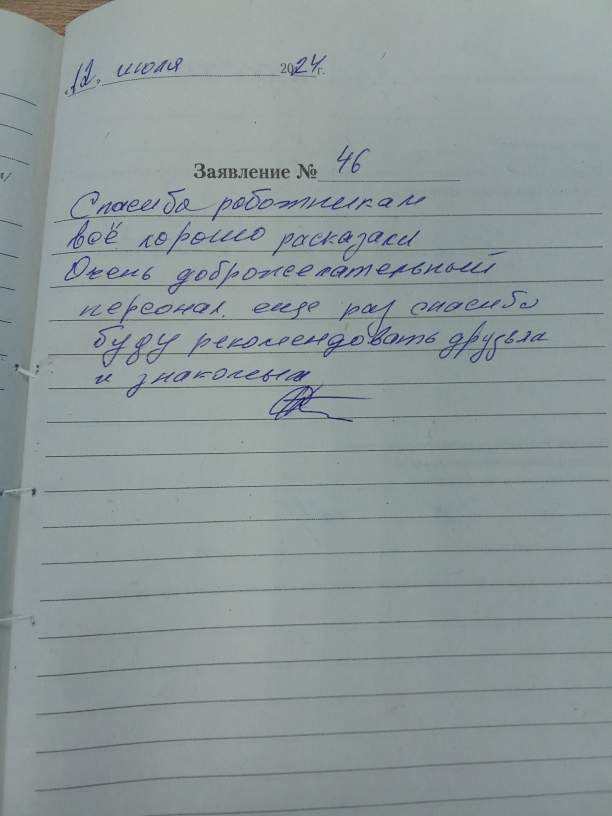 "12" июля 2024 г.
Заявление № 46
Спасибо роботникам
всё хорошо расказали
Очень доброжелательный
персонал. еще раз спасибо
буду рекомендовать друзьям
и знакомым